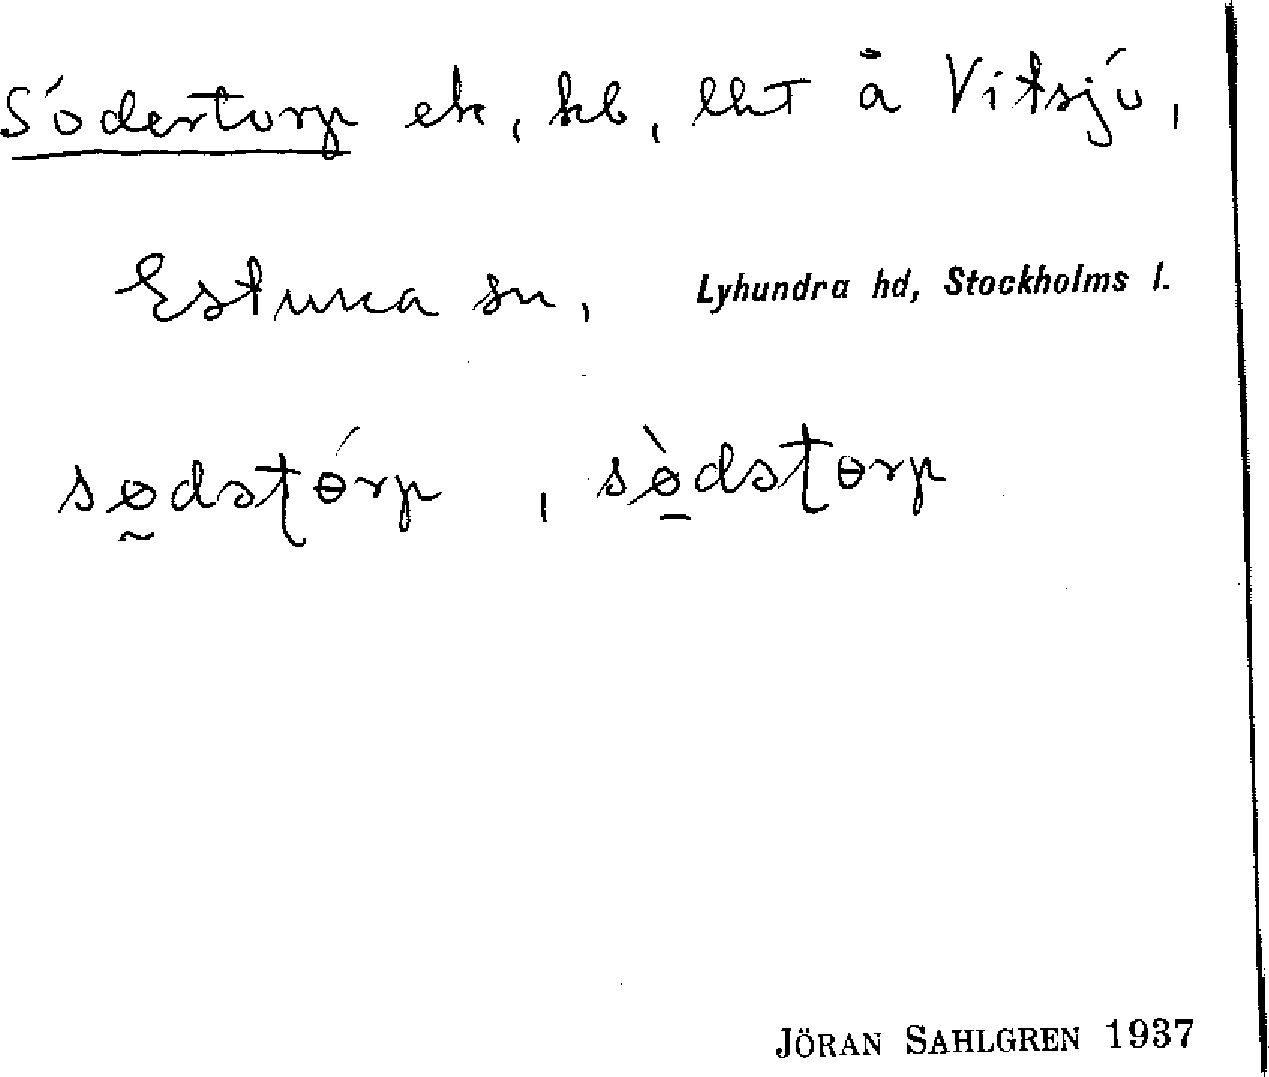 Södertorp ek, kb, lht å Vitsjö,
Estuna sn, Lyhundra hd, Stockholms l.
sødstɵ́rp, sø̀dstɵrp
JÖRAN SAHLGREN 1937